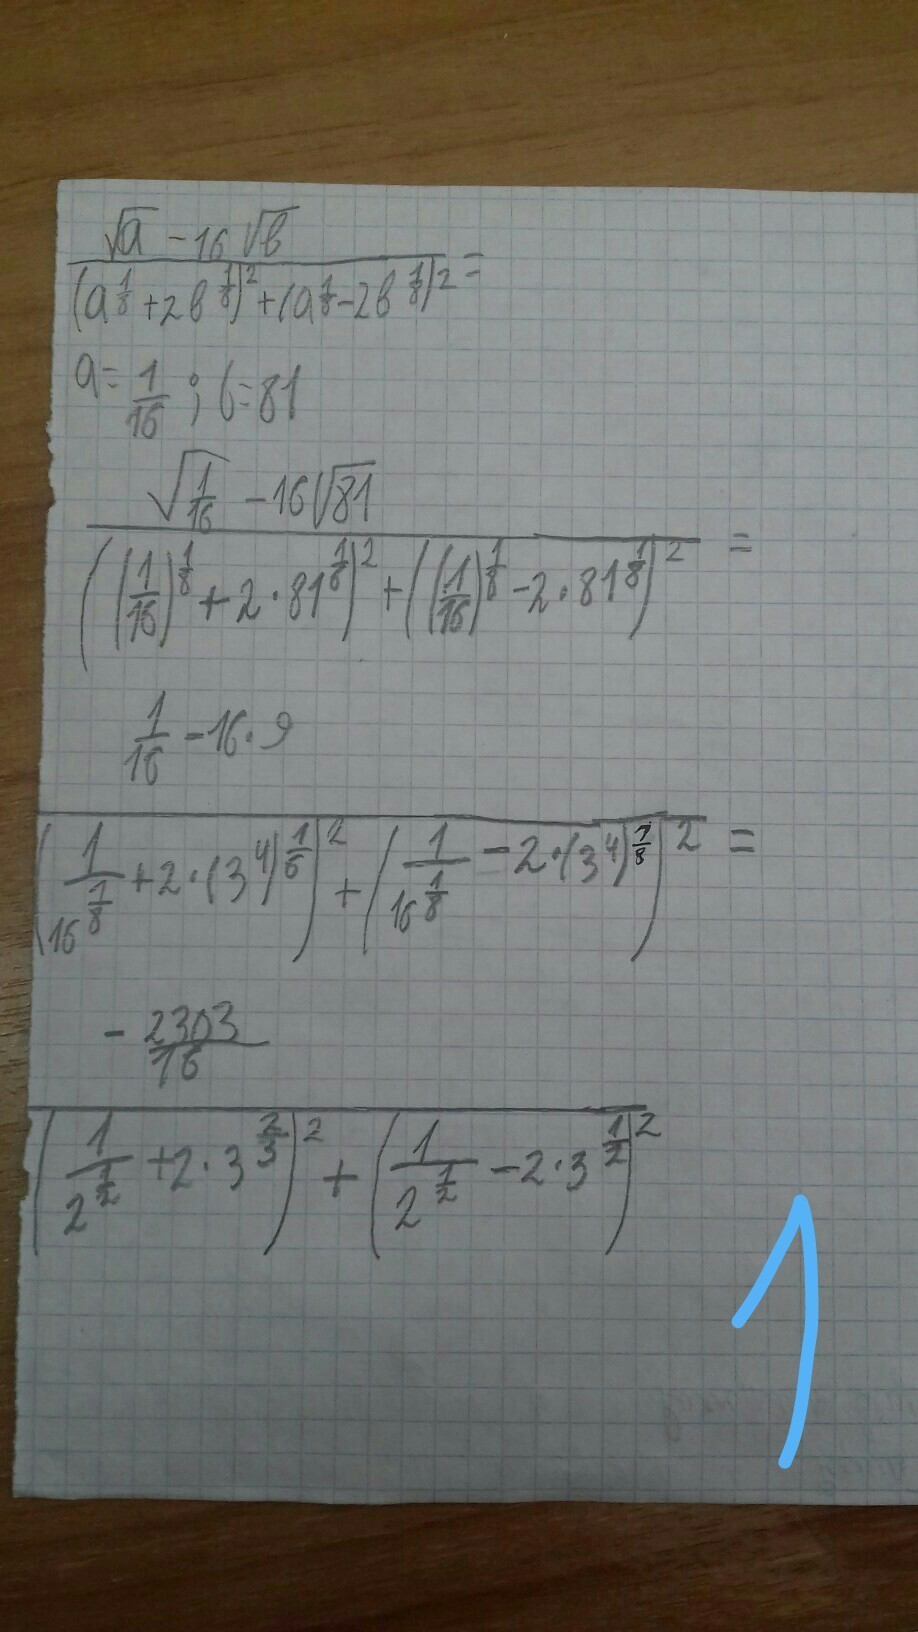 √a - 16√b
(a^(1/8) + 2b^(1/8))^2 + (a^(1/8) - 2b^(1/8))^2 =
a = 1/16 ; b = 81
√(1/16) - 16√81
((1/16)^(1/8) + 2·81^(1/8))^2 + ((1/16)^(1/8) - 2·81^(1/8))^2 =
1/16 - 16·9
(1/16^(1/8) + 2·(3^4)^(1/6))^2 + (1/16^(1/8) - 2·(3^4)^(1/8))^2 =
- 2303/16
(1/2^(1/2) + 2·3^(2/3))^2 + (1/2^(1/2) - 2·3^(1/2))^2
1